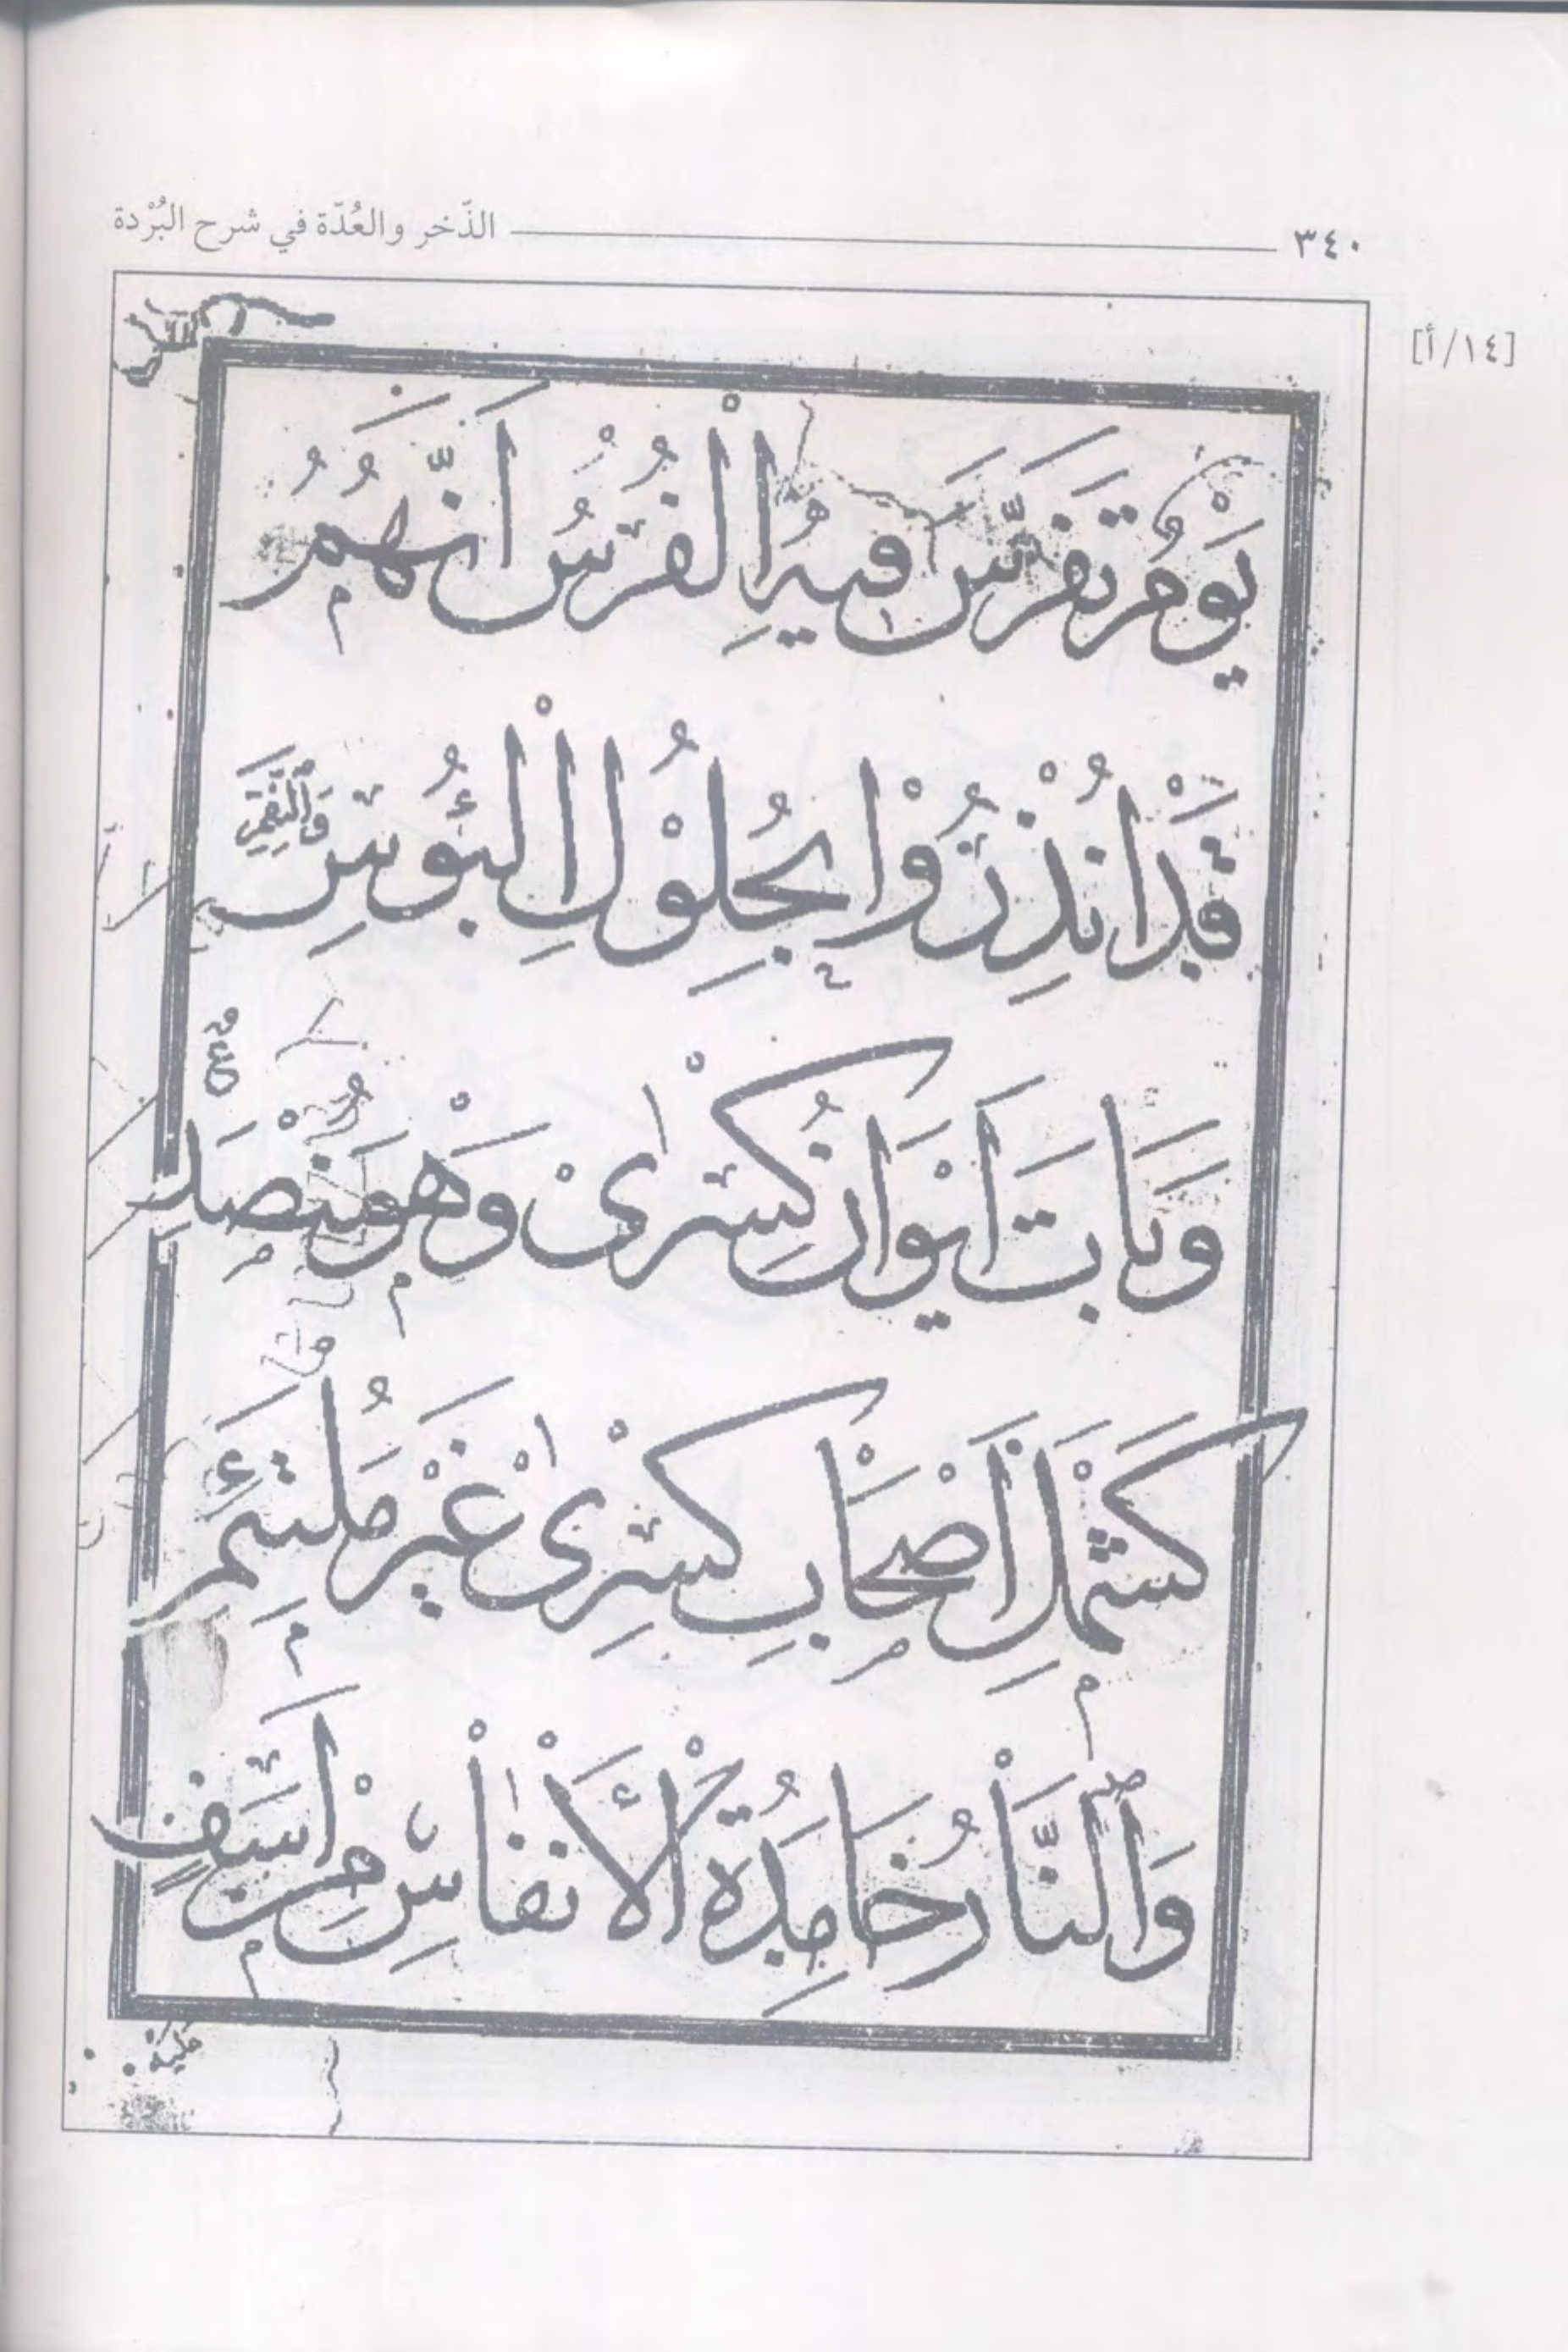 ٣٤٠ الذّخر والعُدّة في شرح البُرْدة
[١٤/أ]
يَوْمُ تَفَرَّسَ فِيهِ الْفُرْسُ اَنَّهُمُ
قَدْ اُنْذِرُوْا بِحُلُوْلِ الْبُؤُسِ وَالنِّقَمِ
وَبَاتَ اَيْوَانُ كِسْرٰىْ وَهْوَ مُنْصَدِعٌ
كَشَمْلِ اَصْحَابِ كِسْرٰىْ غَيْرَ مُلْتَئِمِ
وَالنَّاْرُ خَامِدَةُ الْاَنْفٰاْسِ مِنْ اَسَفٍ
عَلَيْهِ